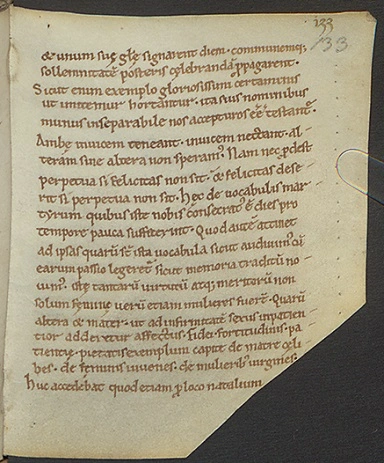 133
33
& unum suę glę signarent diem · communemq;
sollemnitatē posteris cęlebrandā ꝓpagarent ·
Sicut enim exemplo gloriosissimi certaminis
ut imitemur hortantur · ita suis nominibus
munus inseparabile nos accepturos eē testant᷑
Ambę invicem teneant · invicem nectant · al-
teram sine altera non speram᷑ · Nam nec ꝓdest
perpetua si felicitas non sit · & felicitas dese-
rit si perpetua non sit · hęc de vocabulis mar-
tyrum quibus iste nobis consecrat᷑ ē dies pro
tempore pauca suffecerint · Quod autē attinet
ad ipsas quarū st̄ ista vocabula sicut audivim᷑ cū
earum passio legeret᷑ sicut memoria traditū no-
vim᷑ · istę tantarū virtutū atq; meritorū non
solum feminę verū etiam mulieres fuerē · Quarū
altera & mater · ut ad infirmitatē sexus inpatien
tior adderetur affectus · Fidei · fortitudinis · pa-
tientię · pietatis exemplum capite de matre cęli-
bes · de feminis iuvenes · de mulierib᷑ virgines ·
huc accedebat quod etiam ꝓ loco natalium